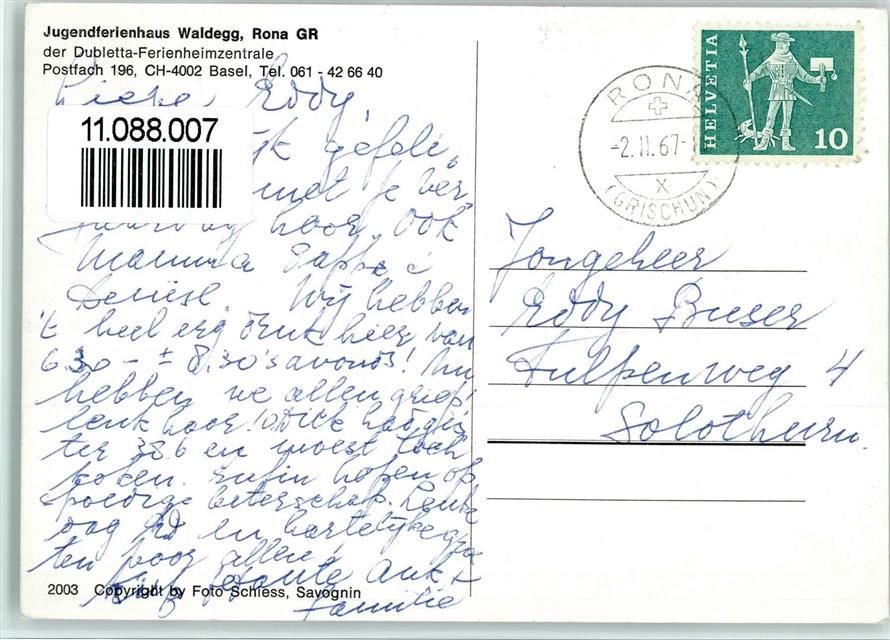 Jugendferienhaus Waldegg, Rona GR
der Dubletta-Ferienheimzentrale
Postfach 196, CH-4002 Basel, Tel. 061 - 42 66 40
Lieke, Eddy,
11.088.007
gefeli,
met je ver
hoor. Ook
Mamma Pappa &
Wij hebben
't heel erg druk hier van
6.30 - ± 8.30 's avonds! Nu
hebben we allen griep!
leuk hoor! Dick had gis
ter 38.6 en moest toch
koken. Enfin hopen op
spoedige beterschap. Leuke
dag en hartelijke groe
ten voor allen!
tante Ank &
familie
2003 Copyright by Foto Schiess, Savognin
RONA
-2.11.67-
X
(GRISCHUN)
HELVETIA
10
Jongeheer
Eddy Buser
Tulpenweg 4
Solothurn.